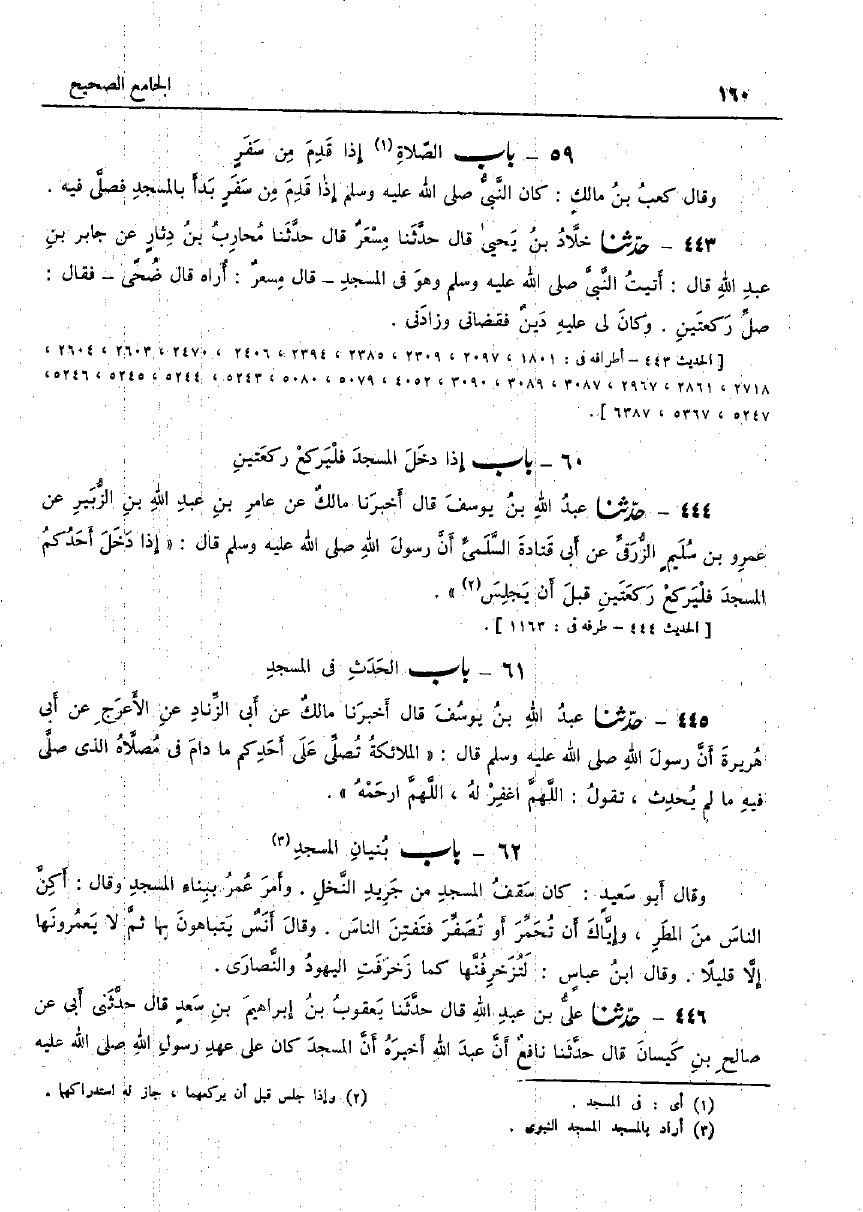 ١٦٠ الجامع الصحيح
٥٩ – باب الصَّلاةِ(١) إذا قَدِمَ مِن سَفَرٍ
وقال كعبُ بنُ مالكٍ : كان النَّبيُّ صلى الله عليه وسلم إذا قَدِمَ مِن سَفَرٍ بَدأَ بالمسجدِ فصلَّى فيه .
٤٤٣ – حدّثنا خلَّادُ بنُ يَحيىٰ قال حدثَّنا مِسْعَرٌ قال حدثَّنا مُحاربُ بنُ دِثارٍ عن جابرِ بنِ
عبدِ اللهِ قال : أتيتُ النَّبيَّ صلى الله عليه وسلم وهوَ فى المسجدِ – قال مِسعرٌ : أُراه قال ضُحًى – فقال :
صلِّ رَكعتَينِ . وكانَ لى عليهِ دَينٌ فقضانى وزادَنى .
[ الحديث ٤٤٣ – أطرافه فى : ١٨٠١ ، ٢٠٩٧ ، ٢٣٠٩ ، ٢٣٨٥ ، ٢٣٩٤ ، ٢٤٠٦ ، ٢٤٧٠ ، ٢٦٠٣ ، ٢٦٠٤ ،
٢٧١٨ ، ٢٨٦١ ، ٢٩٦٧ ، ٣٠٨٧ ، ٣٠٨٩ ، ٣٠٩٠ ، ٤٠٥٢ ، ٥٠٧٩ ، ٥٠٨٠ ، ٥٢٤٣ ، ٥٢٤٤ ، ٥٢٤٥ ، ٥٢٤٦ ،
٥٢٤٧ ، ٥٣٦٧ ، ٦٣٨٧ ] .
٦٠ – باب إذا دخَلَ المسجدَ فلْيَركعْ ركعَتينِ
٤٤٤ – حدّثنا عبدُ اللهِ بنُ يوسفَ قال أخبرَنا مالكٌ عن عامرِ بنِ عبدِ اللهِ بنِ الزُّبَيرِ عن
عمرِو بن سُلَيمٍ الزُّرَقىِّ عن أبى قَتادةَ السَّلَمىِّ أنَّ رسولَ اللهِ صلى الله عليه وسلم قال : « إذا دَخَلَ أحَدُكمُ
المسجدَ فلْيَركعْ رَكعَتَينِ قبلَ أن يَجلِسَ(٢) » .
[ الحديث ٤٤٤ – طرفه فى : ١١٦٣ ] .
٦١ – باب الحَدَثِ فى المسجدِ
٤٤٥ – حدّثنا عبدُ اللهِ بنُ يوسُفَ قال أخبرَنا مالكٌ عن أبى الزِّنادِ عنِ الأعرَجِ عن أبى
هُريرةَ أنَّ رسولَ اللهِ صلى الله عليه وسلم قال : « الملائكةُ تُصلِّى عَلَى أحَدِكم ما دامَ فى مُصلَّاهُ الذى صلَّى
فيهِ ما لم يُحدِث ، تقولُ : اللَّهمَّ اغفِرْ لهُ ، اللَّهمَّ ارحَمْهُ » .
٦٢ – باب بُنيانِ المسجدِ(٣)
وقال أبو سَعيدٍ : كان سَقفُ المسجدِ من جَريدِ النَّخلِ . وأمرَ عُمرُ ببِناءِ المسجدِ وقال : أَكِنَّ
الناسَ منَ المطَرِ ، وإيَّاكَ أن تُحَمِّرَ أو تُصَفِّرَ فتَفتِنَ الناسَ . وقالَ أنَسٌ يَتباهونَ بها ثمَّ لا يَعمُرونَها
إلَّا قليلًا . وقال ابنُ عباسٍ : لَتُزَخرِفُنَّها كما زَخرَفَتِ اليهودُ والنَّصارَى .
٤٤٦ – حدّثنا علىُّ بن عبدِ اللهِ قال حدثَّنا يَعقوبُ بنُ إبراهيمَ بنِ سَعدٍ قال حدثَّنى أبى عن
صالحِ بنِ كَيسانَ قال حدثَّنا نافعٌ أنَّ عبدَ اللهِ أخبرَهُ أنَّ المسجدَ كان على عهدِ رسولِ اللهِ صلى الله عليه
(١) أى : فى المسجد . (٢) وإذا جلس قبل أن يركعهما ، جاز له استدراكها .
(٣) أراد بالمسجد المسجد النبوى .